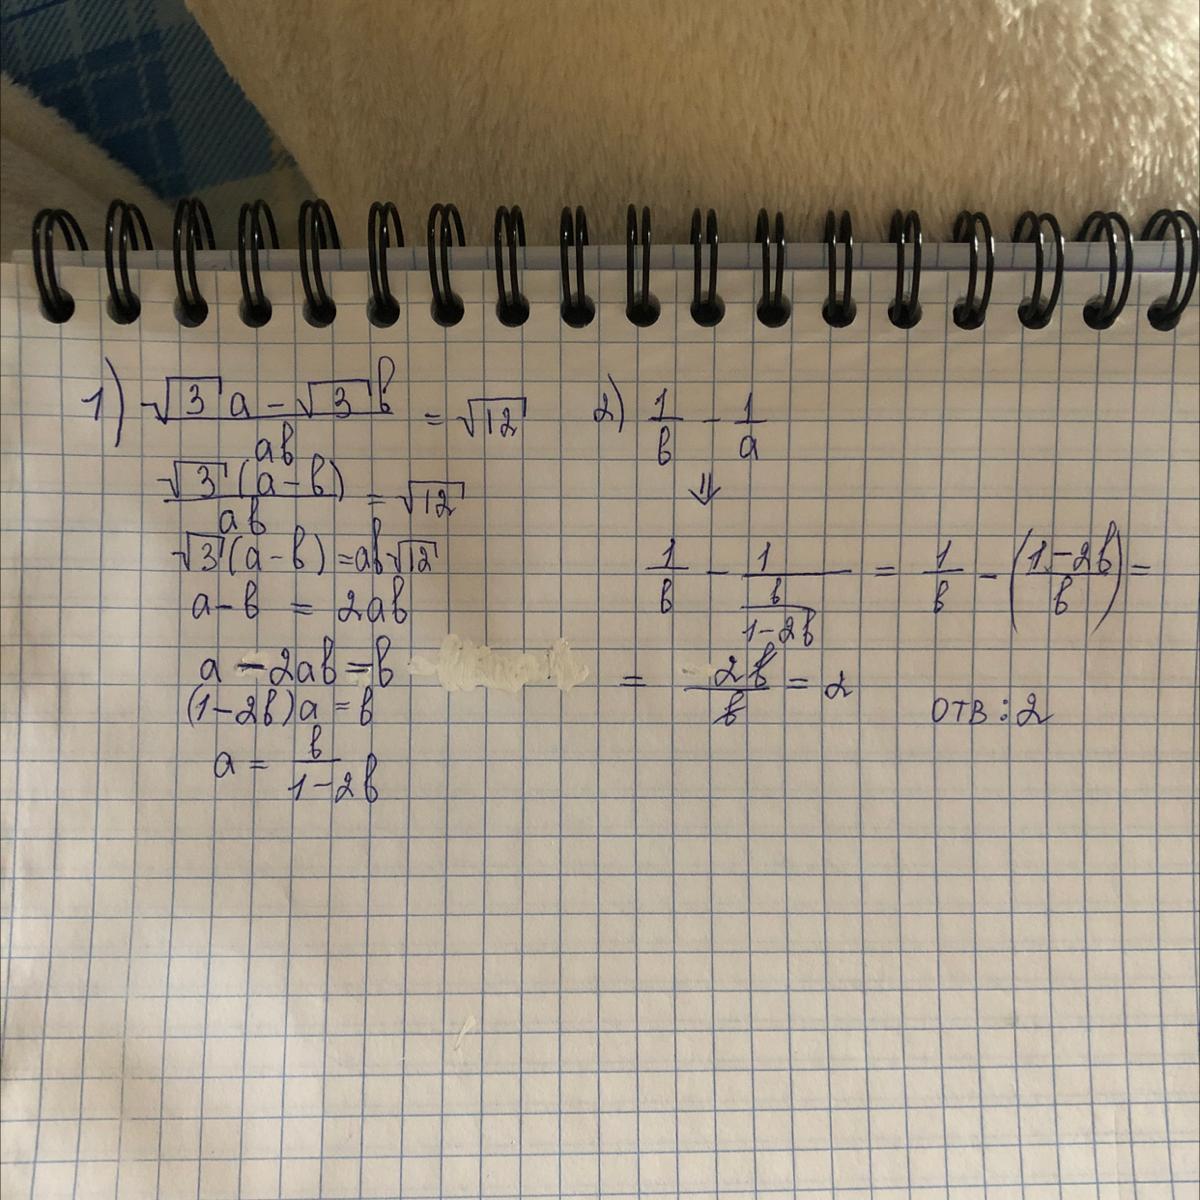 1) (√3 a − √3 b)/(ab) = √12
(√3 (a − b))/(ab) = √12
√3 (a − b) = ab√12
a − b = 2ab
a − 2ab = b
(1 − 2b)a = b
a = b/(1 − 2b)
2) 1/b − 1/a
⇓
1/b − 1/(b/(1 − 2b)) = 1/b − ((1 − 2b)/b) =
= 2b/b = 2
отв : 2